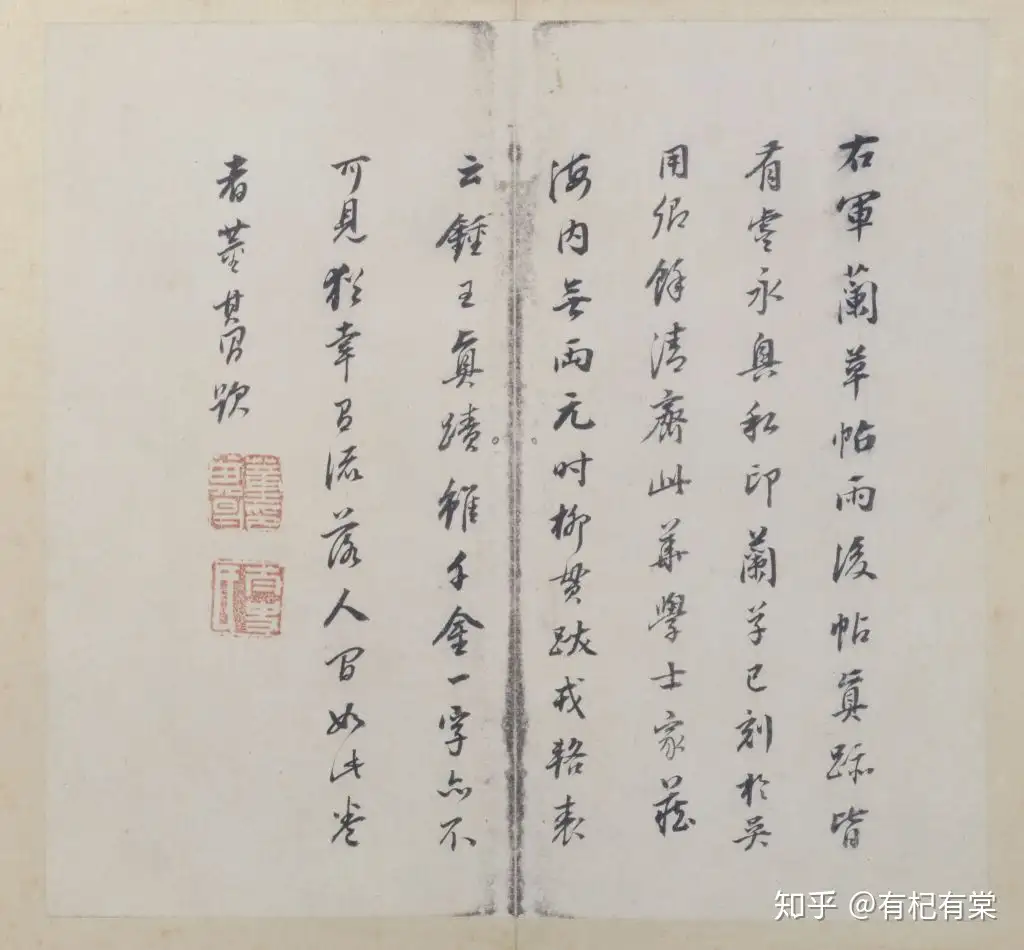 右軍蘭草帖雨後帖真跡皆
有虞永興私印蘭草已刻於吳
用卿餘清齋此華學士家藏
海內無兩元時柳貫跋戎輅表
云鍾王真蹟雖千金一字亦不
可見猶幸有流落人間如此卷
者董其昌題
知乎 @有杞有棠